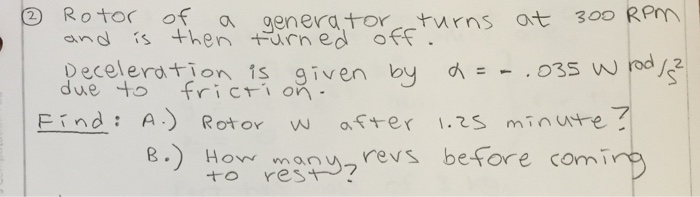 ② Rotor of a generator turns at 300 RPM
and is then turned off.
Deceleration is given by α = - .035 W rod/s²
due to friction.
Find: A.) Rotor W after 1.25 minute?
B.) How many revs before coming
to rest?